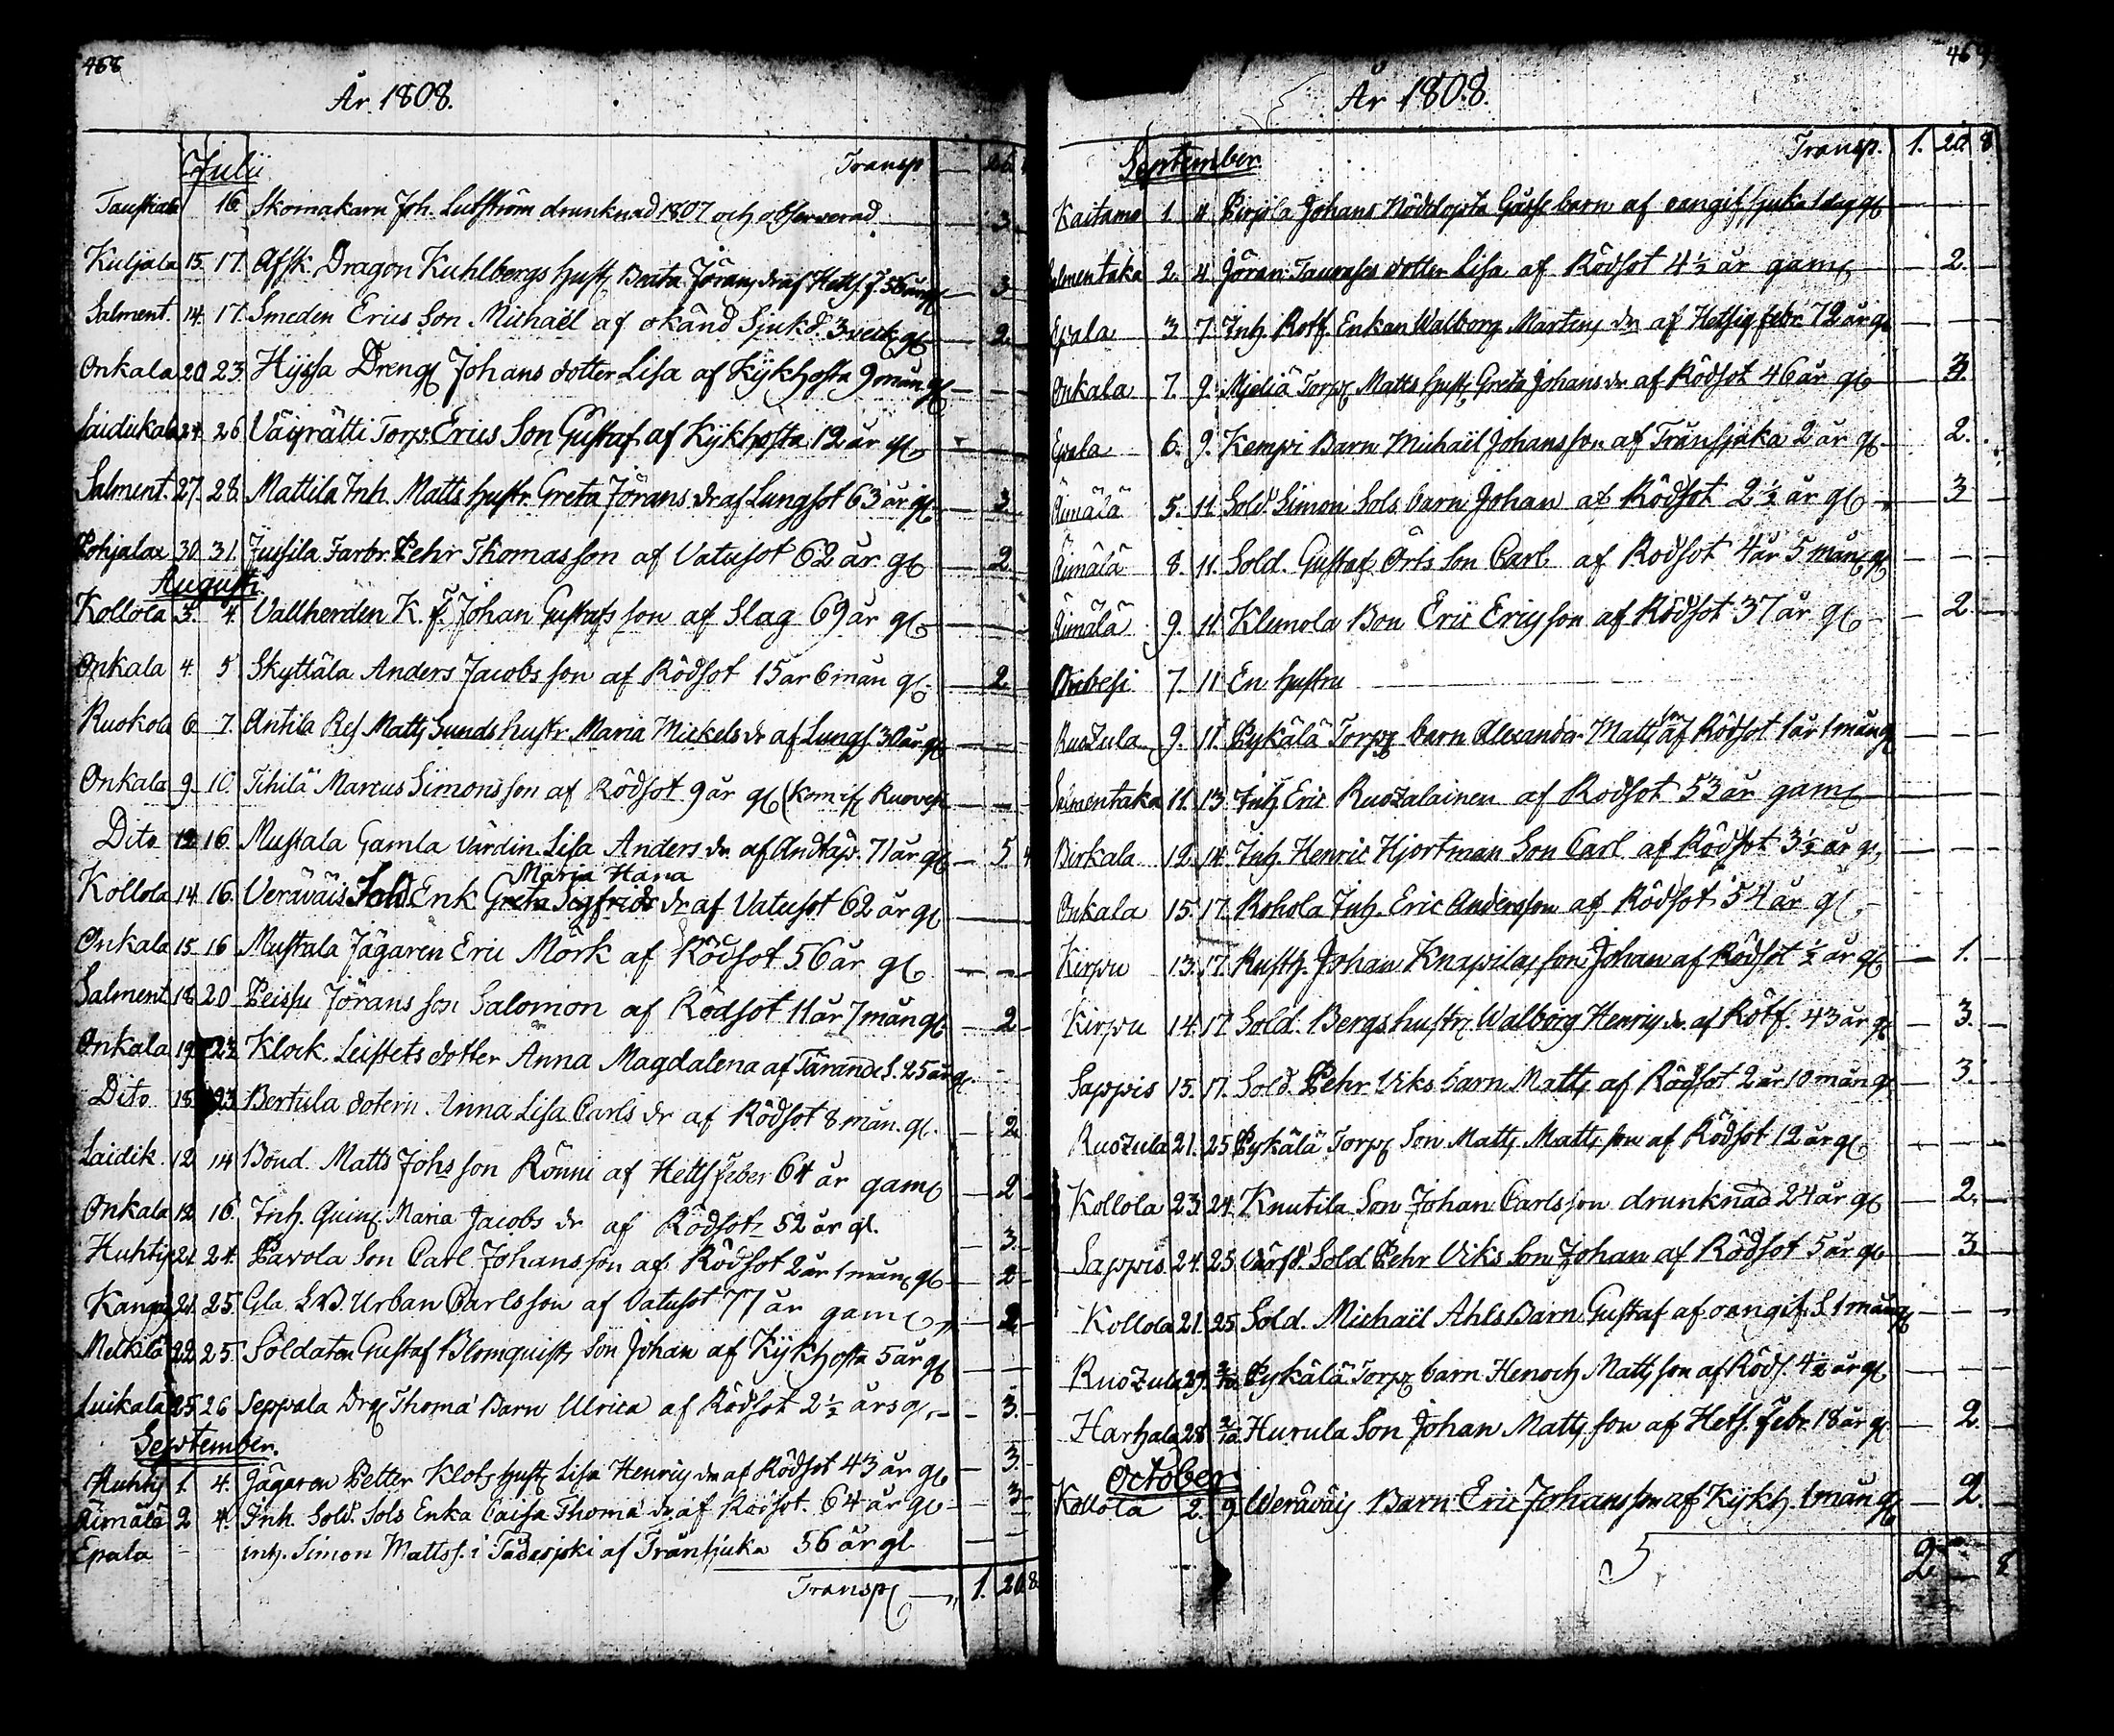 468
År 1808.
Julii Transp
16. Skomakarn Joh. Lutström drunknad 1807 och obserwerad. 3
Kuljala 15. 17. Afsk. Dragon Kuhlbergs hust Beata Jörans dr af Hetts. f. 56 år gl 3
Salment. 14. 17. Smeden Erics Son Michaël af okänd Sjukd. 3 veck gl 2.
Onkala 20 23. Hyssa Dreng Johans dotter Lisa af Kykhosta 9 mån gl
Laidikala 24. 26 Väyrätti Torp. Erics Son Gustaf af Kykhosta 12 år gl
Salment. 27. 28. Mattila Inh. Matts hustr. Greta Jörans dr af Lungsot 63 år gl 3
Pohjalax 30. 31. Jussila Farbr. Pehr Thomas son af Vatusot 62 år gl 2
Augusti
Kollola 3. 4. Vallherden K. f. Johan Gustafs son af Slag 69 år gl
Onkala 4. 5 Skyttäla Anders Jacobs son af Rödsot 15 år 6 mån gl. 2
Ruokola 6. 7. Antila Matts Sunds hustr. Maria Mickels dr af Lungs. 30 år gl
Onkala 9. 10. Tihilä Marcus Simons son af Rödsot 9 år gl (kom if Ruovesi
Dito 12 16. Mustala Gamla Värdin Lisa Anders dr af Andtäp. 71 år gl 5 4
Maria Hana
Kollola 14. 16. Veräväis Sold. Enk Greta Sigfrids dr af Vatusot 62 år gl
Onkala 15. 16 Mustala Jägaren Eric Mörk af Rödsot 56 år gl
Salment 18. 20 Peissu Jörans son Salomon af Rödsot 11 år 7 mån gl 2
Onkala 19. 23. Klock. Leistets dotter Anna Magdalena af Tärande S. 25 år gl.
Dito 18. 23 Bertula dotern Anna Lisa Carls dr af Rödsot 8 mån. gl. 2.
Laidik. 12 14 Bond. Matts Johs son Rönni af Hetts feber 64 år gaml 2
Onkala 12 16. Inh. Quinf. Maria Jacobs dr af Rödsot 52 år gl. 3.
Huhtis 21. 24. Pavola Son Carl Johans son af Rödsot 2 år 1 mån gl 2
21. 25. Gla. Urban Carlsson af Vatusot 77 år gaml 2
22. 25. Soldaten Gustaf Blomquists Son Johan af Kykhosta 5 år gl
Luikala 25. 26 Seppala Drg Thoma Barn Ulrica af Rödsot 2½ års gl. 3.
September.
Huhtis 1. 4. Jägaren Petter Klots hust Lisa Henrics dr af Rödsot 43 år gl 3.
Äimälä 2 4. Inh. Sold. Sols Enka Caisa Thoma dr af Rödsot. 64 år gl 3
Epala inh. Simon Matts s. i af Trånsjuka 56 år gl.
Transp 1. 20 8
469
År 1808.
September. Transp. 1. 20 8
Kaitamo 1. 4. Pirjola Johans Nöddöpta Gåsse barn af oangif sjuka 1 dag gl
Salmentaka 2. 4. Jöran dotter Lisa af Rödsot 4½ år gaml 2.
Epala 3 7. Inh. Rotf. Enkan Walborg Martins dr af Hetsig febr. 72 år gl
Onkala 7. 9. Mjeliä Torp Matts hust Greta Johans dr af Rödsot 46 år gl 3.
Epala 6. 9. Kempi Barn Michaël Johansson af Trånsjuka 2 år gl 2.
Äimälä 5. 11. Sold Simon Sols barn Johan af Rödsot 2½ år gl 3
Äimälä 8. 11. Sold. Gustaf Örts Son Carl af Rödsot 4 år 5 mån gl
Äimälä 9. 11. Klemola Bon Eric Ericsson af Rödsot 37 år gl 2
Oribesi 7. 11 En hustru
son
Ruozula 9. 11. Pykälä Torp barn Alexander Matts af Rödsot 1 år 1 mån gl
Salmentaka 11. 13. Inh Eric Ruozalainen af Rödsot 53 år gaml
Birkala 12. 14. Inh. Henric Hjortman Son Carl af Rödsot 3½ år gl
Onkala 15. 17. Rohola Inh. Eric Andersson af Rödsot 54 år gl.
Kirpu 13. 17. Rusth. Johan Knapilas son Johan af Rödsot ½ år gl 1.
Kirpu 14. 17. Sold. Bergs hustr. Walborg Henrics dr. af Rötf. 43 år gl 3.
Sappis 15. 17. Sold. Pehr Viks barn Matts af Rödsot 2 år 10 mån gl 3.
Ruozula 21. 25 Pykälä Torp Son Matts Matts son af Rödsot 12 år gl
Kollola 23. 24. Knutila Son Johan Carlsson drunknad 24 år gl 2.
Sappis 24. 25 Sold Pehr Viks Son Johan af Rödsot 5 år gl 3
Kollola 21. 25. Sold. Michaël Ahls Barn Gustaf af oangif. S. 1 mån gl
Ruozula 29. 2/10. Pykälä Torp barn Henoch Matts son af Röds. 4½ år gl
Harhala 28. 2/10. Hurula Son Johan Matts son af Hets. febr. 18 år gl 2.
October
Kollola 2. 9. Weräväis Barn Eric Johansson af Kykh. 1 mån gl 2.
2. 8